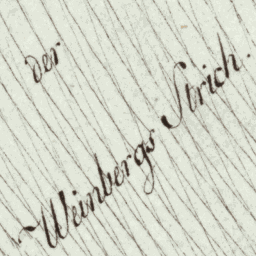 der
Weinbergs Strich.